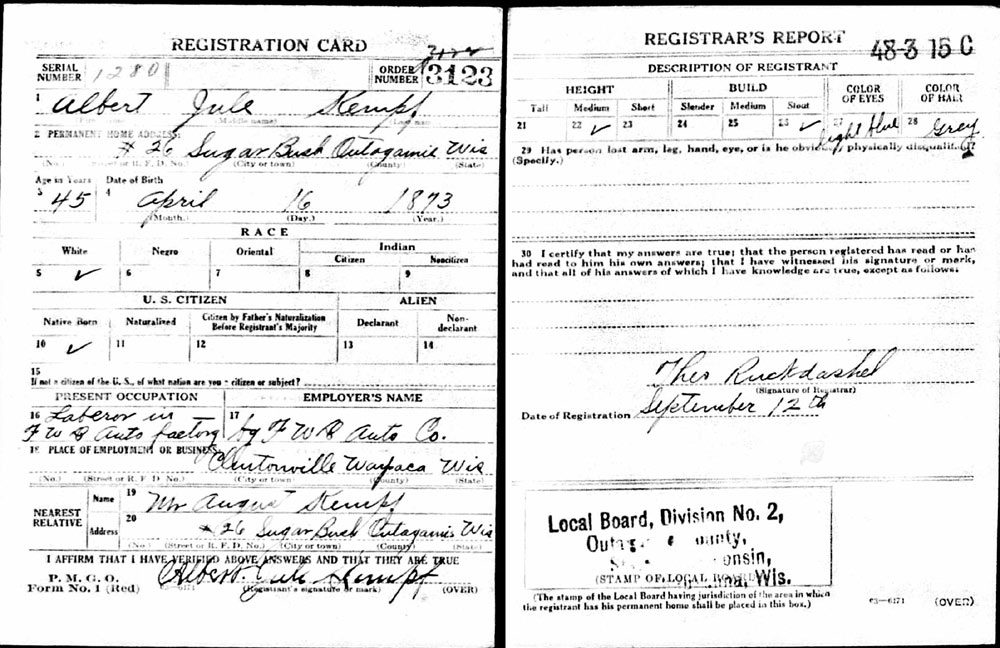 REGISTRATION CARD
SERIAL NUMBER 1280
ORDER NUMBER 3123
1 Albert Jule Kempf
(First name) (Middle name) (Last name)
2 PERMANENT HOME ADDRESS:
# 26 Sugar Bush Outagamie Wis
(No.) (Street or R. F. D. No.) (City or town) (County) (State)
Age in Years Date of Birth
3 45 4 April 16 1873
(Month.) (Day.) (Year.)
RACE
White Negro Oriental Indian
Citizen Noncitizen
5 ✓ 6 7 8 9
U. S. CITIZEN ALIEN
Native Born Naturalized Citizen by Father's Naturalization Before Registrant's Majority Declarant Non-declarant
10 ✓ 11 12 13 14
15
If not a citizen of the U. S., of what nation are you a citizen or subject?
PRESENT OCCUPATION EMPLOYER'S NAME
16 Laborer in 17
F W D Auto factory by F W D Auto Co.
18 PLACE OF EMPLOYMENT OR BUSINESS:
Clintonville Waupaca Wis
(No.) (Street or R. F. D. No.) (City or town) (County) (State)
NEAREST RELATIVE
Name 19 Mr August Kempf
Address 20 # 26 Sugar Bush Outagamie Wis
(No.) (Street or R. F. D. No.) (City or town) (County) (State)
I AFFIRM THAT I HAVE VERIFIED ABOVE ANSWERS AND THAT THEY ARE TRUE
P. M. G. O.
Form No. 1 (Red) Albert Jule Kempf
(Registrant's signature or mark) (OVER)
REGISTRAR'S REPORT
48-3 15 C
DESCRIPTION OF REGISTRANT
HEIGHT BUILD COLOR OF EYES COLOR OF HAIR
Tall Medium Short Slender Medium Stout
21 22 ✓ 23 24 25 26 ✓ 27 light blue 28 Grey
29 Has person lost arm, leg, hand, eye, or is he obviously physically disqualified?
(Specify.)
30 I certify that my answers are true; that the person registered has read or has
had read to him his own answers; that I have witnessed his signature or mark,
and that all of his answers of which I have knowledge are true, except as follows:
Ruckdashel
(Signature of Registrar)
Date of Registration September 12th
Local Board, Division No. 2,
Wis.
(STAMP OF LOCAL BOARD)
(The stamp of the Local Board having jurisdiction of the area in which
the registrant has his permanent home shall be placed in this box.)
63-6171 (OVER)